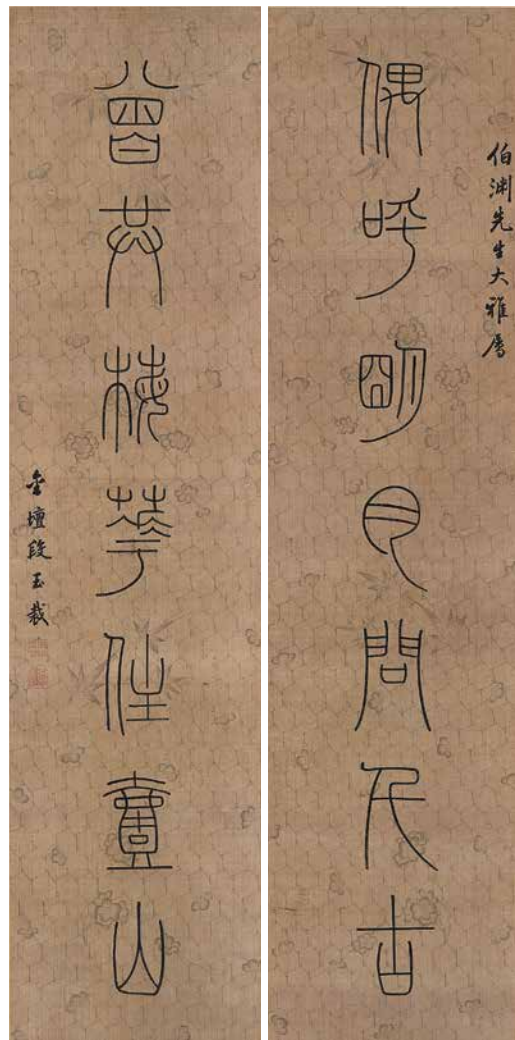 伯淵先生大雅属
偶呼朙月問千古
曾共梅華住壹山
金壇段玉裁